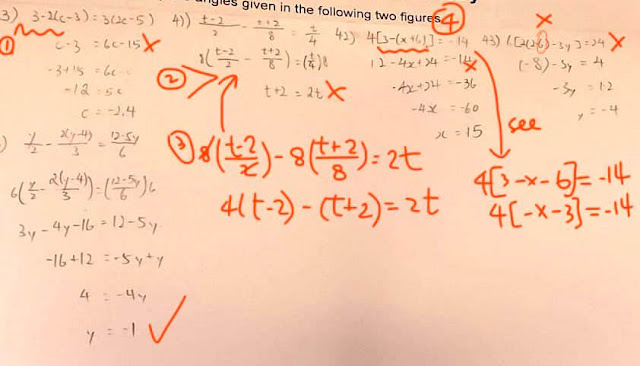 angles given in the following two figures
④
3) 3-2(c-3) = 3(2c-5)
①
c-3 = 6c-15 ✗
-3+15 = 6c
-12 = 5c
c = -2.4
y/2 - 2(y-4)/3 = 12-5y/6
6(y/2 - 2(y-4)/3) = (12-5y/6)6
3y - 4y-16 = 12-5y
-16+12 = -5y+y
4 = -4y
y = -1 ✓
41) t-2/2 - t+2/8 = t/4
8(t-2/2 - t+2/8) = (t/4)8
②
t+2 = 2t ✗
③ 8(t-2/2) - 8(t+2/8) = 2t
4(t-2) - (t+2) = 2t
42) 4[3-(x+6)] = -14
12-4x+24 = -14 ✗
-4x+24 = -36
-4x = -60
x = 15
see
4[3-x-6] = -14
4[-x-3] = -14
✗
-3y = 12
y = -4